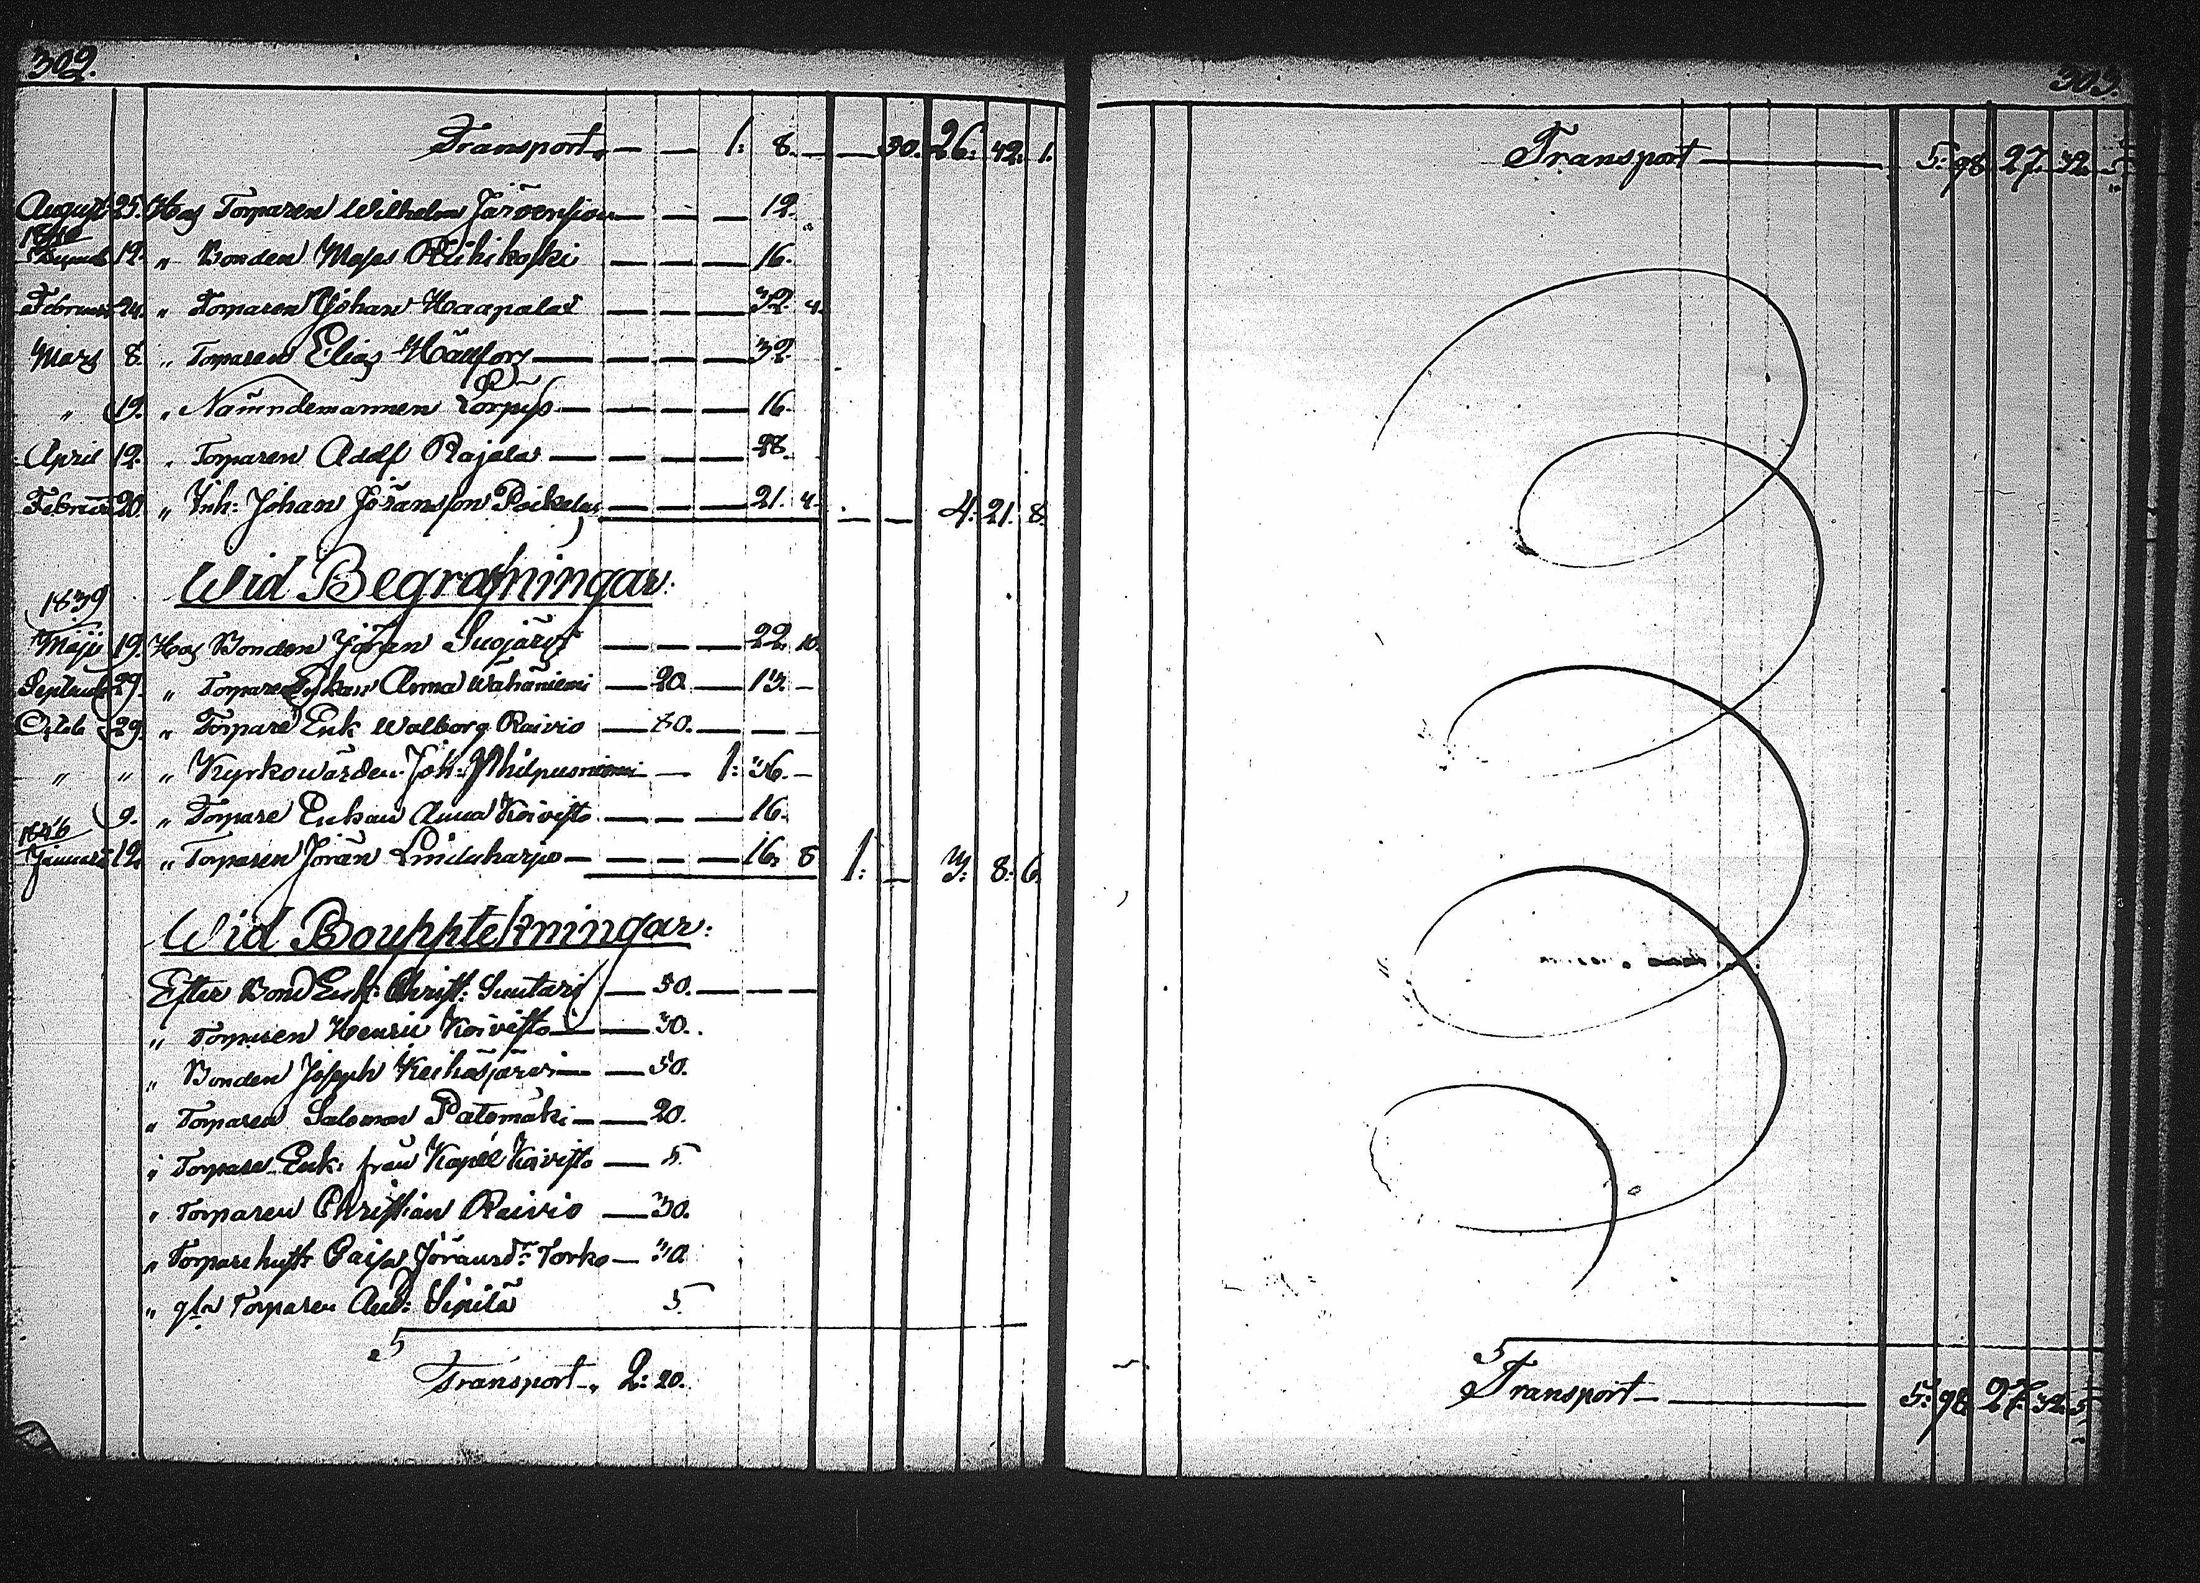 302.
Transport. — — 1: 8. — — 30. 26: 42: 1.
August 25. Hos Torparen Wilhelm Järvenpää — — — 12.
1840
12. " Bonden Mats Riihikoski — — — 16.
Februari 24. " Torparen Johan Haapala — — — — 32. 4.
Mars 8. " Torparen Elias Hällfors — — — — 32.
" 19. " Nämndemannen Lorpys — — — — 16.
April 12. " Torparen Adolf Rajala — — — — 28.
Februari 20. " Inh: Johan Jöransson — — — — 21. 4. — — 4. 21. 8.
Wid Begrafningar.
1839
Maji 19. Hos Bonden Jöran Suojärvi — — — 22. 10.
Septemb 29. " Torpare Enkan Anna Wähäniemi — 20. — 13. —
Octob 29. " Torpare Enk Walborg Raivio — 80. — — —
" " " Kyrkowärden Joh: Philpusniemi — 1: 36. —
9. " Torpare Enkan Anna Koivisto — — — 16.
1840
Januari 12. " Torparen Jöran Linduharju — — — — 16. 8 1: — 3: 8: 6.
Wid Bouppteckningar:
Efter Bond Enk: Christ: Suutari — 50. — — —
" Torparen Henric Koivisto — 30.
" Bonden Joseph Keihäsjärvi — 50.
" Torparen Salomon Patomäki — 20.
" Torpare Enk: från Koivisto — 5.
" Torparen Christian Raivio — 30.
" Torpare hust: Caisa Jöransdr: Torko — 30.
" Torparen And: Sipilä 5.
Transport. 2: 20.
303.
Transport — 5: 98 27. 32. 5
Transport — 5: 98 27. 32. 5